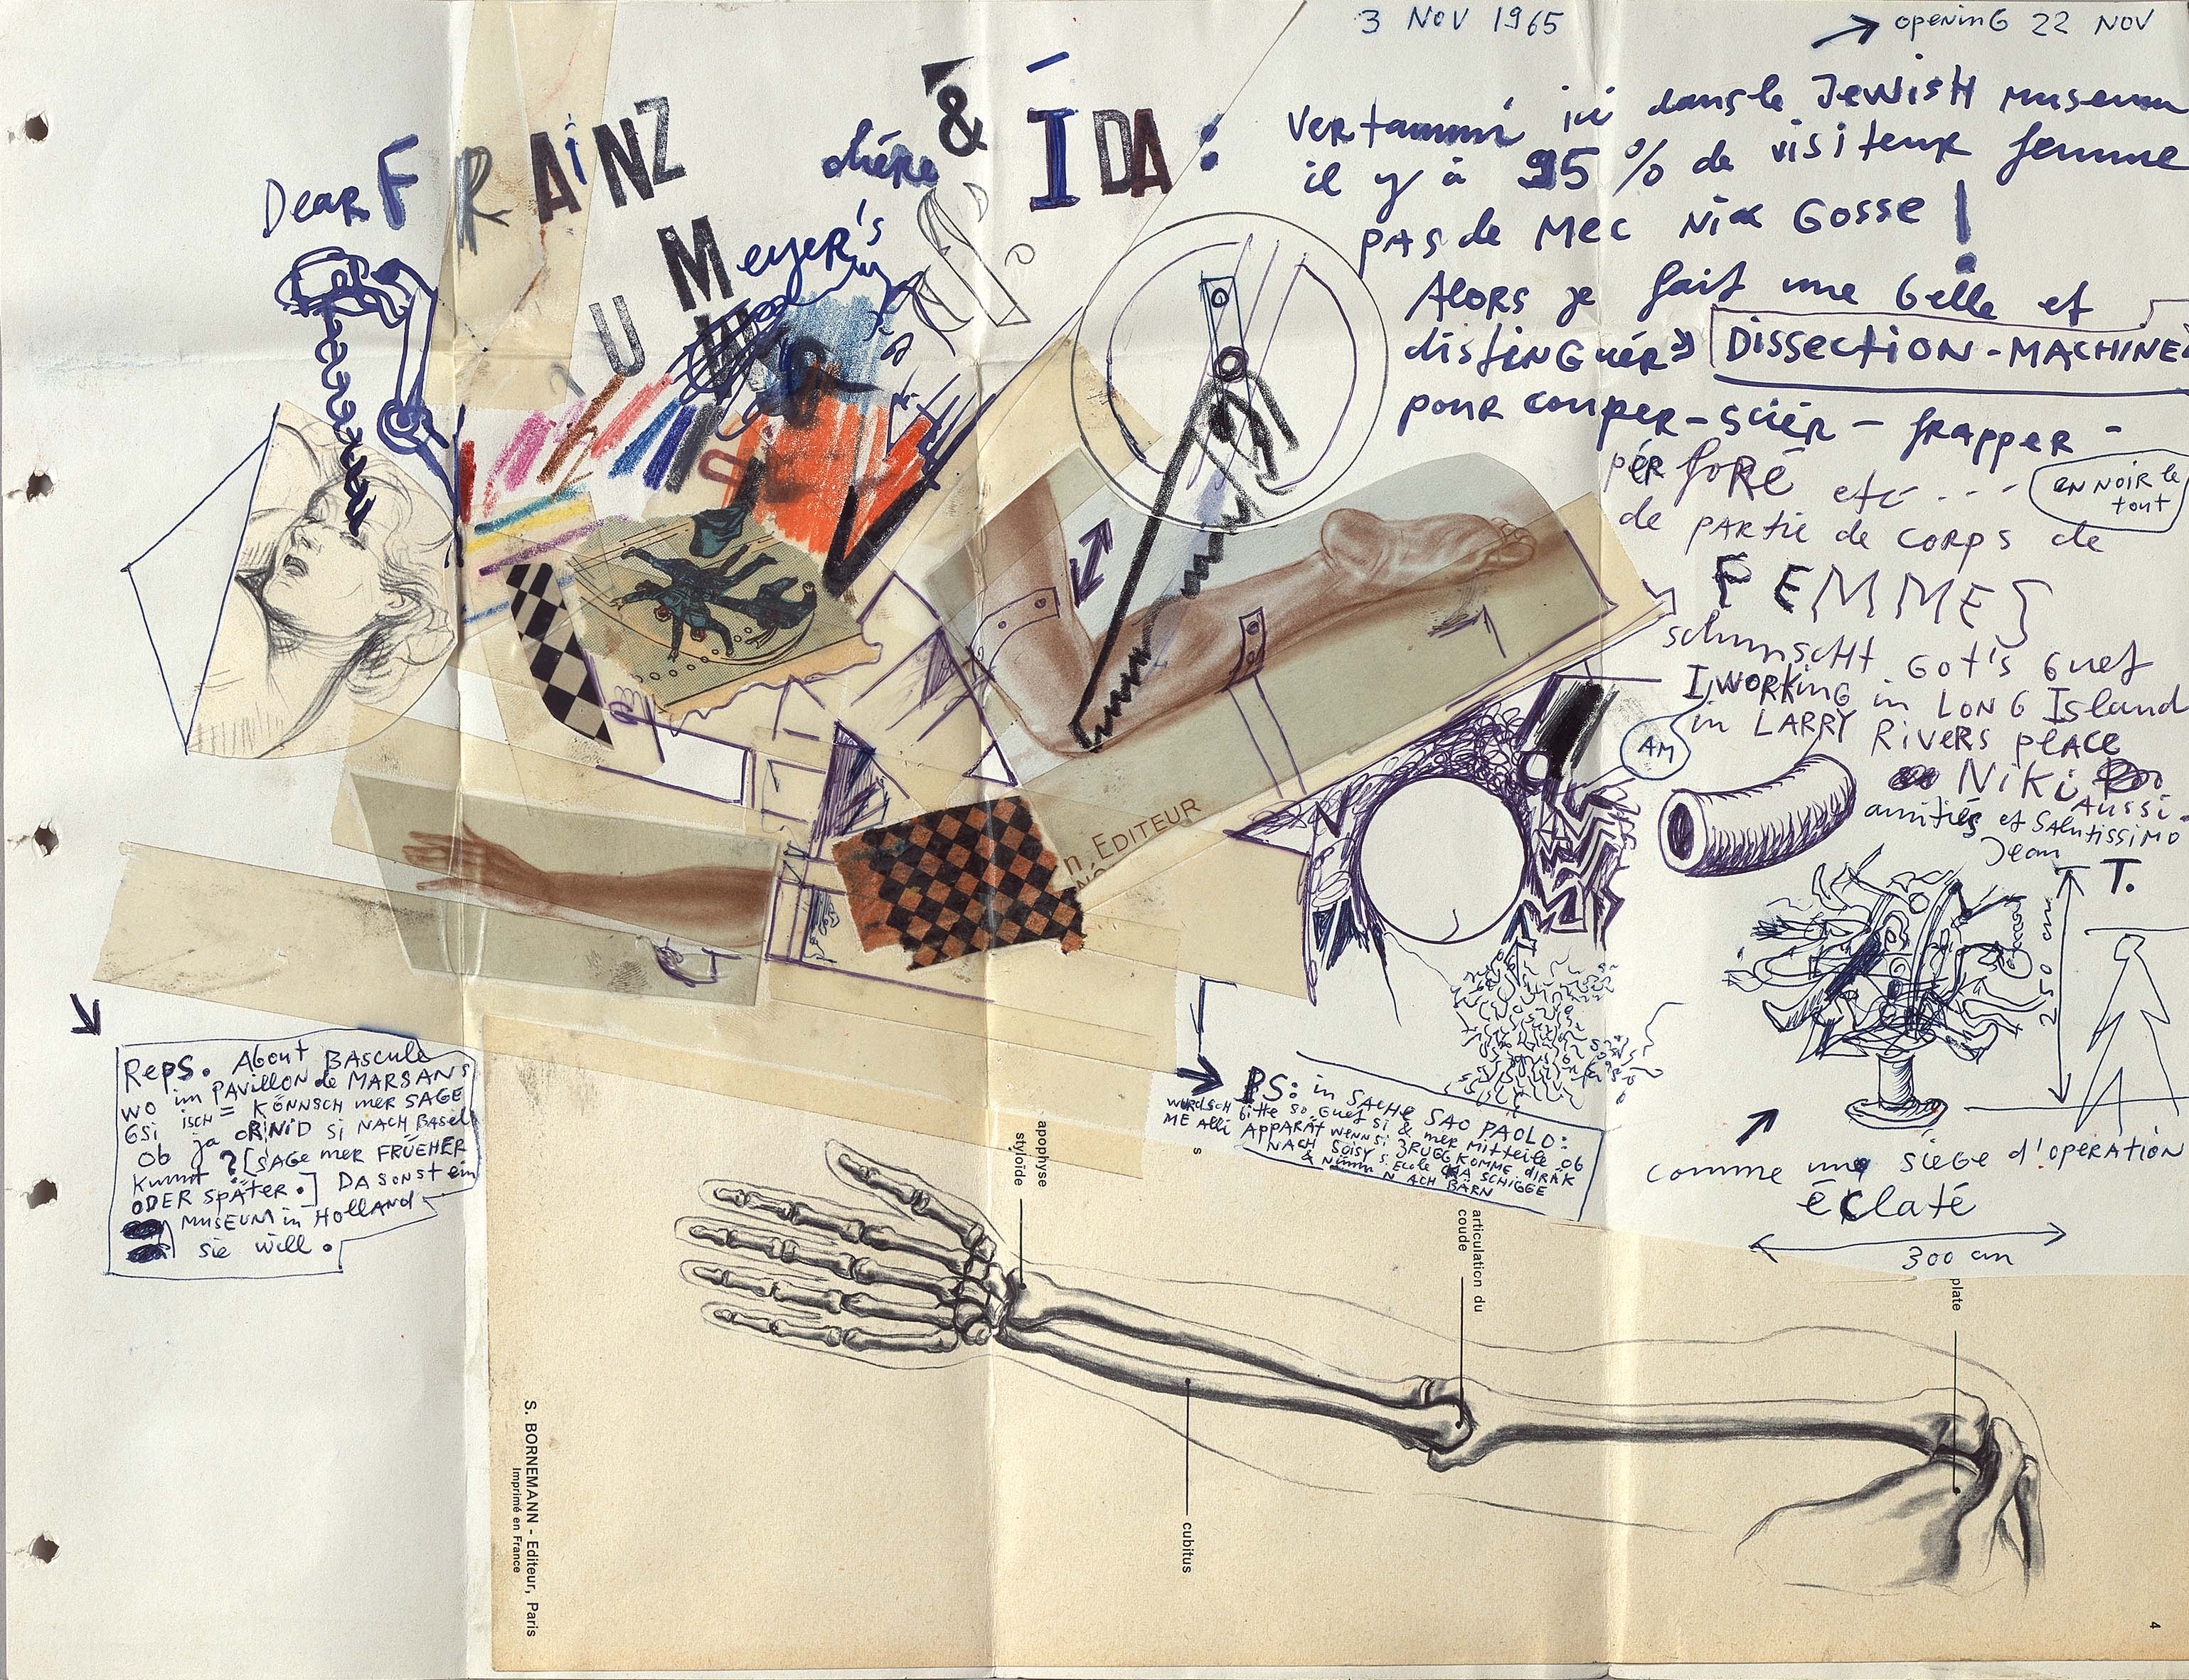 3 NOV 1965
→ opening 22 NOV
Dear FRAiNZ chère & ÏDA :
Meyer's
U
ici dans le Jewish museum
il y à 95 % de visiteur femme
pas de Mec Nix Gosse !
Alors je fait une belle et
distinguér DissectiON-MACHINE
pour couper-sciér - frapper -
pérforé etc - - -
en noir le
tout
de partie de corps de
FEMME}
schunscht Got's Guet
I working in LONG Island
AM
in LARRY Rivers place
Niki
Aussi.
amitiés et Salutissimo
Jean T.
250 cm
comme une siége d'opération
éclaté
300 cm
n, EDITEUR
Reps. About Bascule
wo im Pavillon de MARSANS
Gsi isch = KÖNNSCH mer SAGE
ob ja ORNiD si NACH Basel
kunnt ? [SAGe mer FRÜEHER
ODER SPÄTER.] DA SONST ein
MUSEUM in Holland
sie will.
PS: in SACHE SAO PAOLO:
wurdsch bitte so guet si & mer Mitteile ob
ME Alli APPARÄT wenn si ZRUGG KOMME DIRÄK
NACH SOISY s. Ecole SCHIGGE
& NACH BÄRN
s
apophyse
styloïde
articulation du
coude
plate
cubitus
S. BORNEMANN - Editeur, Paris
Imprimé en France
4